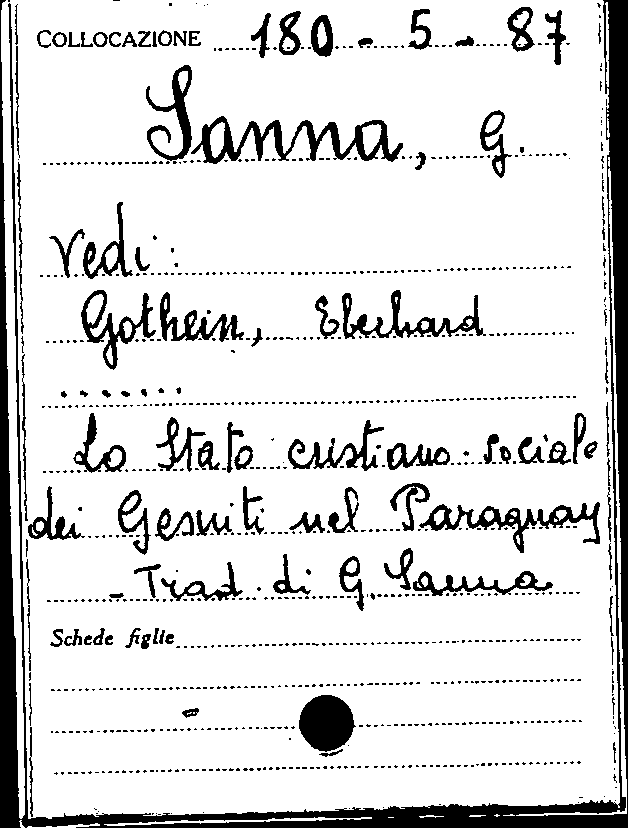 COLLOCAZIONE 180 - 5 - 87
Sanna, G.
Vedi:
Gothein, Eberhard
.......
Lo Stato cristiano-sociale
dei Gesuiti nel Paraguay
- Trad. di G. Sanna
Schede figlie